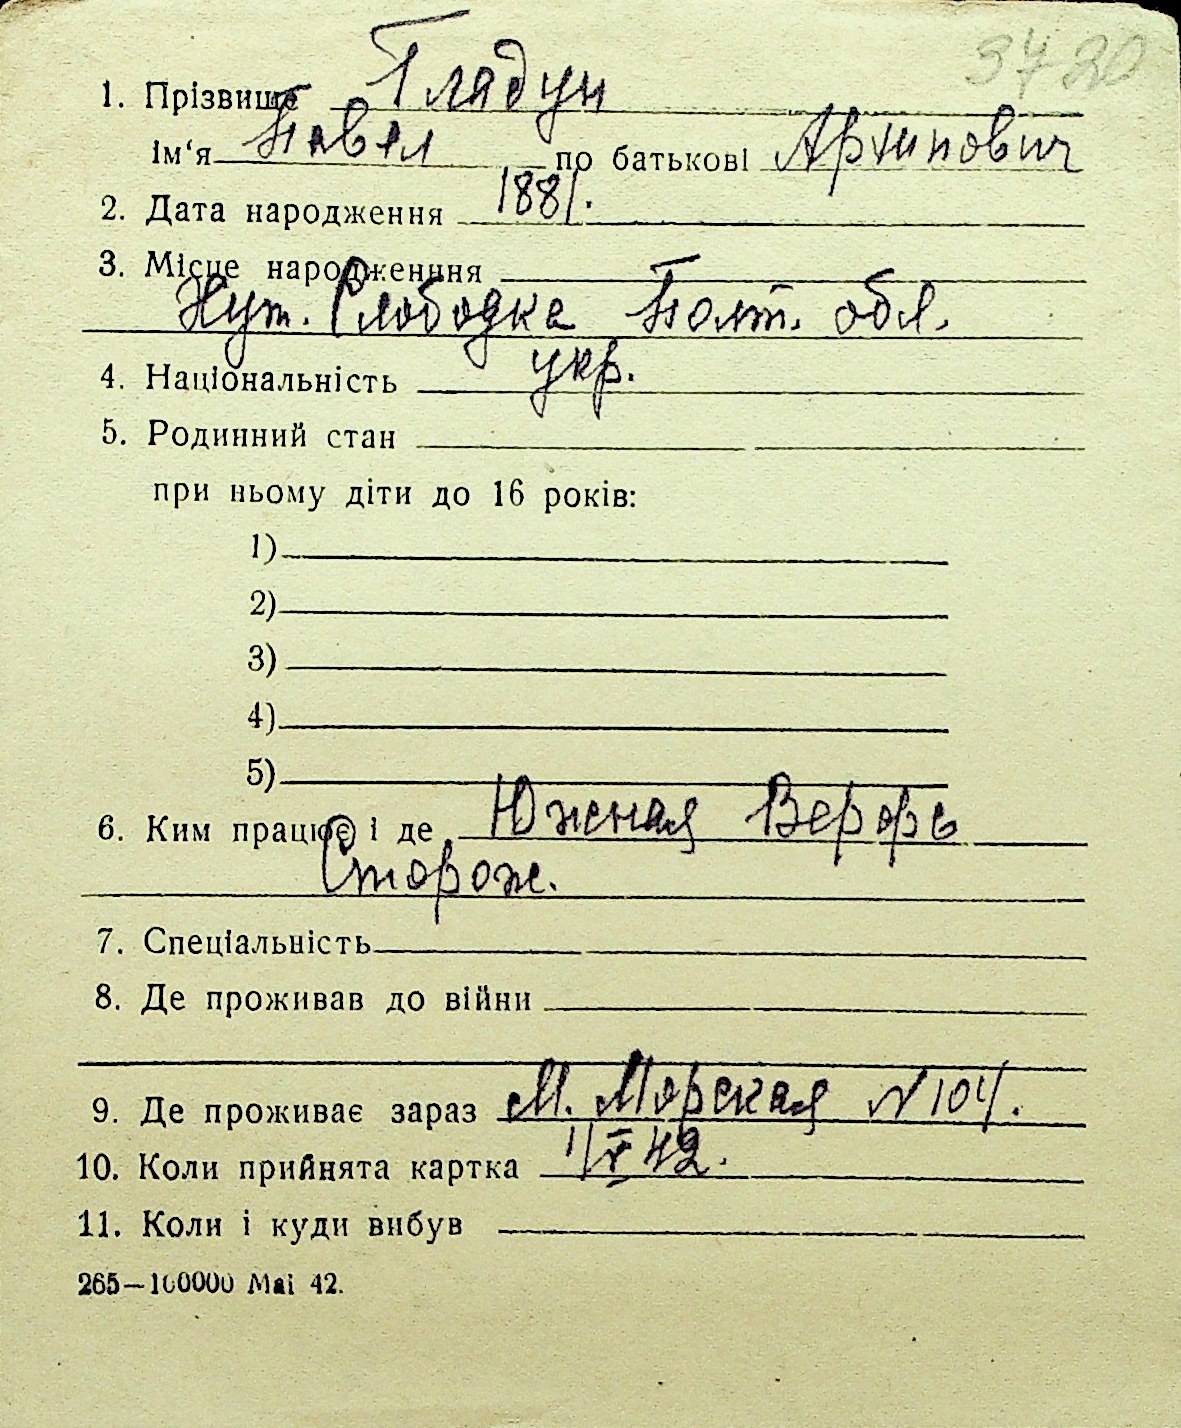 3720
1. Прізвище Гладун
Ім‘я Павел по батькові Архипович
2. Дата народження 1881.
3. Місце народженння
Хут. Слободка Полт. обл.
4. Національність укр.
5. Родинний стан
при ньому діти до 16 років:
1)
2)
3)
4)
5)
6. Ким працює і де Южная Верфь
Сторож.
7. Спеціальність
8. Де проживав до війни
9. Де проживає зараз М. Морская № 104.
10. Коли прийнята картка 42.
11. Коли і куди вибув
265—100000 Mai 42.